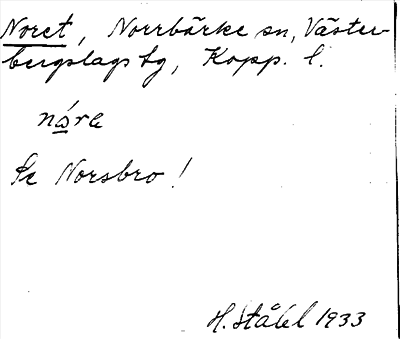 Noret, Norrbärke sn, Väster-
bergslags tg, Kopp. l.
Se Norsbro!
H. Ståhl 1933